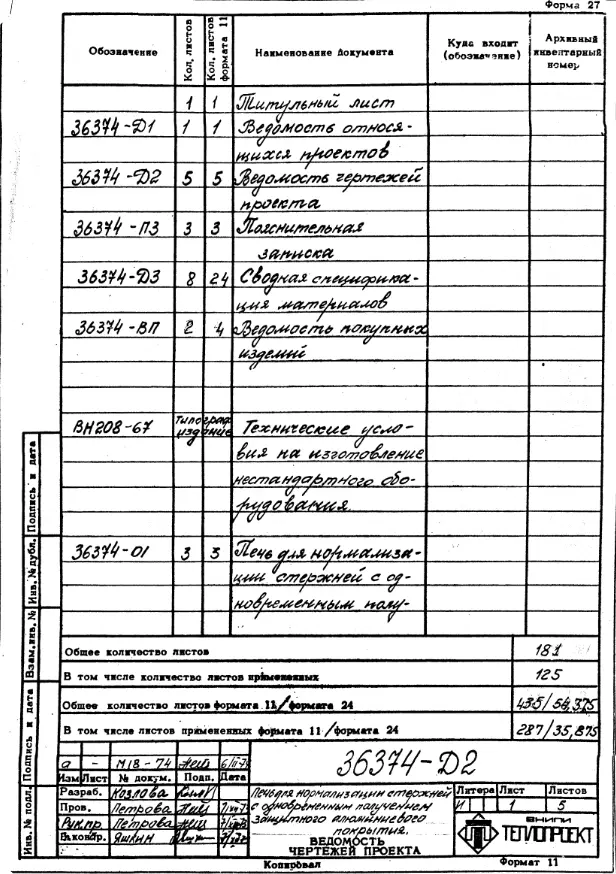 Форма 27
Обозначение
Кол. листов
Кол. листов формата 11
Наименование документа
Куда входит (обозначение)
Архивный инвентарный номер
1 1 Титульный лист
36374-Д1 1 1 Ведомость относя-
щихся проектов
36374-Д2 5 5 Ведомость чертежей
проекта
36374-ПЗ 3 3 Пояснительная
записка
36374-Д3 8 24 Сводная специфика-
ция материалов
36374-ВП 2 4 Ведомость покупных
изделий
ВН208-67 Типограф. издание Технические усло-
вия на изготовление
нестандартного обо-
рудования.
36374-01 3 3 Печь для нормализа-
ции стержней с од-
новременным полу-
Общее количество листов 181
В том числе количество листов примененных 125
Общее количество листов формата 11/формата 24 435/54,375
В том числе листов примененных формата 11/формата 24 287/35,875
а - М18-74
Изм Лист № докум. Подп. Дата
36374-Д2
Разраб. Козлова
Пров. Петрова
Рук.пр. Петрова
Н.контр. Яшкин
Печь для нормализации стержней
с одновременным получением
защитного алюминиевого
покрытия.
ВЕДОМОСТЬ
ЧЕРТЕЖЕЙ ПРОЕКТА
Литера Лист Листов
И 1 5
ВНИПИ
ТЕПЛОПРОЕКТ
Копировал
Формат 11
Инв. № подл.
Подпись и дата
Взам. инв. №
Инв. № дубл.
Подпись и дата